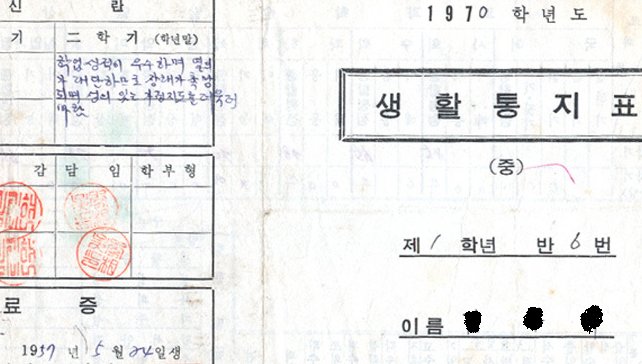 신 란
기 二 학 기 (학년말)
학업성적이 우수하며 열의
가 대단하므로 장래가 촉망
되며 성의 있는 지도를
바람
감 담 임 학부형
료 증
1957 년 5 월 24일생
1970 학년도
생활통지표
(중)
제 1 학년 반 6 번
이름